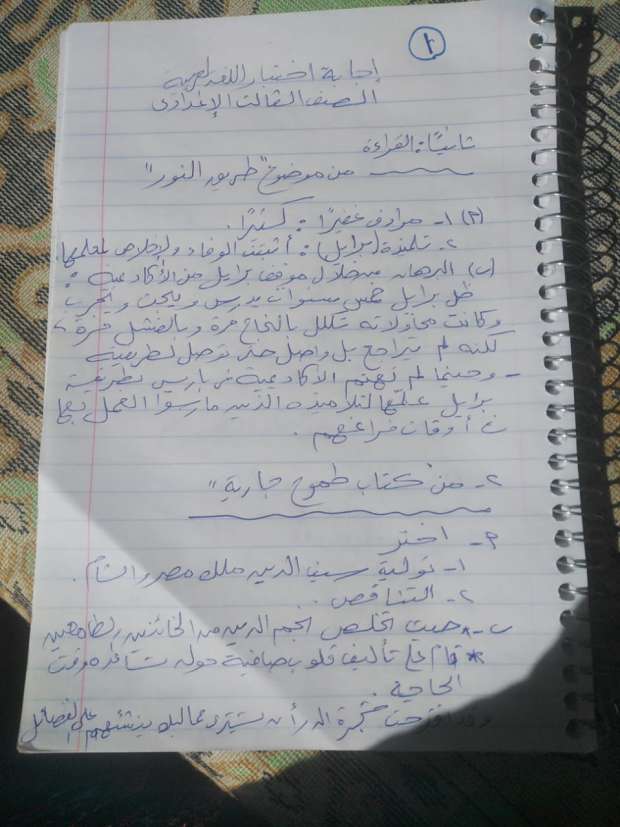 ١
إجابة اختبار اللغة العربية
الصف الثالث الإعدادى
ثانيًا: القراءة
من موضوع "طريق النور"
(٢) ١- مرادف غفيرًا: كثيرًا.
٢- تلمذة (برايل): أثبتت الوفاء والإخلاص لمعلمها.
(ب) البرهان من خلال موقف برايل من الأكاديمية:
ظل برايل خمس سنوات يدرس ويبحث ويجرب
وكانت محاولاته تتكلل بالنجاح مرة وبالفشل مرة،
لكنه لم يتراجع بل واصل حتى توصل لطريقته
- وحينما لم تهتم الأكاديمية فى باريس بطريقة
برايل علمها لتلاميذه الذين مارسوا العمل بها
فى أوقات فراغهم.
٢- من كتاب طموح جارية"
٢- اختر
١- تولية سيف الدين ملك مصر والشام.
٢- التناقص.
ب- * حيث تخلص نجم الدين من الخائنين والطامعين
* قام على تأليف قلوب صافية حوله تسانده وقت
الحاجة.
وقد اقترحت شجرة الدر أن يشترى مماليك ينشئهم على الفضائل